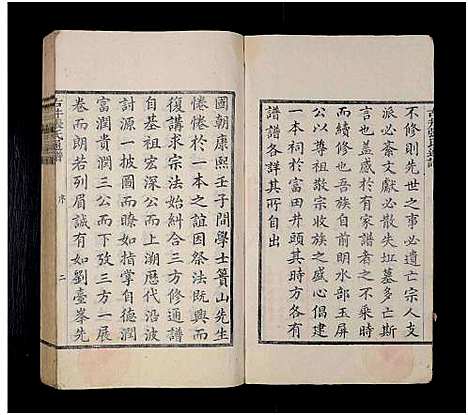 不修則先世之事必遺亡宗人支
派必紊文獻必散失址墓多亡斯
言也蓋感於有家譜者之不乘時
而續修也吾族自前明水部玉屏
公以尊祖敬宗收族之盛心倡建
一本祠於富田井頭其間各有專
譜譜各詳其所自出
國朝康熙壬子間學士簣山先生
惓惓於一本之誼因祭法既興而
復講求宗法始糾合三方修通譜
自基祖宏深公而上溯歷代沿波
討源一披圖而瞭如指掌自德潤
富潤貴潤三公而下攷三方一展
卷而朗若列眉誠有如劉臺峯先
序
二